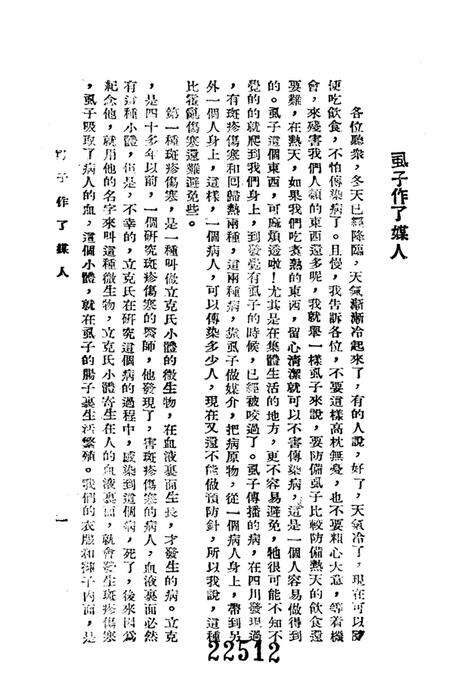 虱子作了媒人
各位聽衆,冬天已經降臨,天氣漸漸冷起來了,有的人說,好了,天氣冷了,現在可以隨
便吃飲食,不怕傳染病了。且慢,我告訴各位,不要這樣高枕無憂,也不要粗心大意,等着機
會,來殘害我們人類的東西還多呢,我就舉一樣虱子來說,要防備虱子比較防備熱天的飲食還
要難,在熱天,如果我們吃煑熱的東西,留心清潔就可以不害傳染病,這是一個人容易做得到
的。虱子這個東西,可麻煩透啦!尤其是在集體生活的地方,更不容易避免,牠很可能不知不
覺的的就爬到我們身上,到發覺有虱子的時候,已經被咬過了。虱子傳播的病,在四川發現過
,有斑疹傷寒和回歸熱兩種,這兩種病,靠虱子做媒介,把病原物,從一個病人身上,帶到另
外一個人身上,這樣,一個病人,可以傳染多少人,現在又還不能做預防針,所以我說,這種
比霍亂傷寒還難避免些。
第一種斑疹傷寒,是一種叫做立克氏小體的微生物,在血液裏面生長,才發生的病。立克
,是四十多年以前,一個研究斑疹傷寒的醫師,他發現了,害斑疹傷寒的病人,血液裏面必然
有這種小體,但是,不幸的,立克氏在研究這個病的過程中,感染到這個病,死了,後來因爲
紀念他,就用他的名字來叫這種微生物,立克氏小體寄生在人的血液裏面,就會發生斑疹傷寒
,虱子吸取了病人的血,這個小體,就在虱子的腸子裏生活繁殖。我們的衣服和褲子內面,是
虱子作了媒人
一
22512